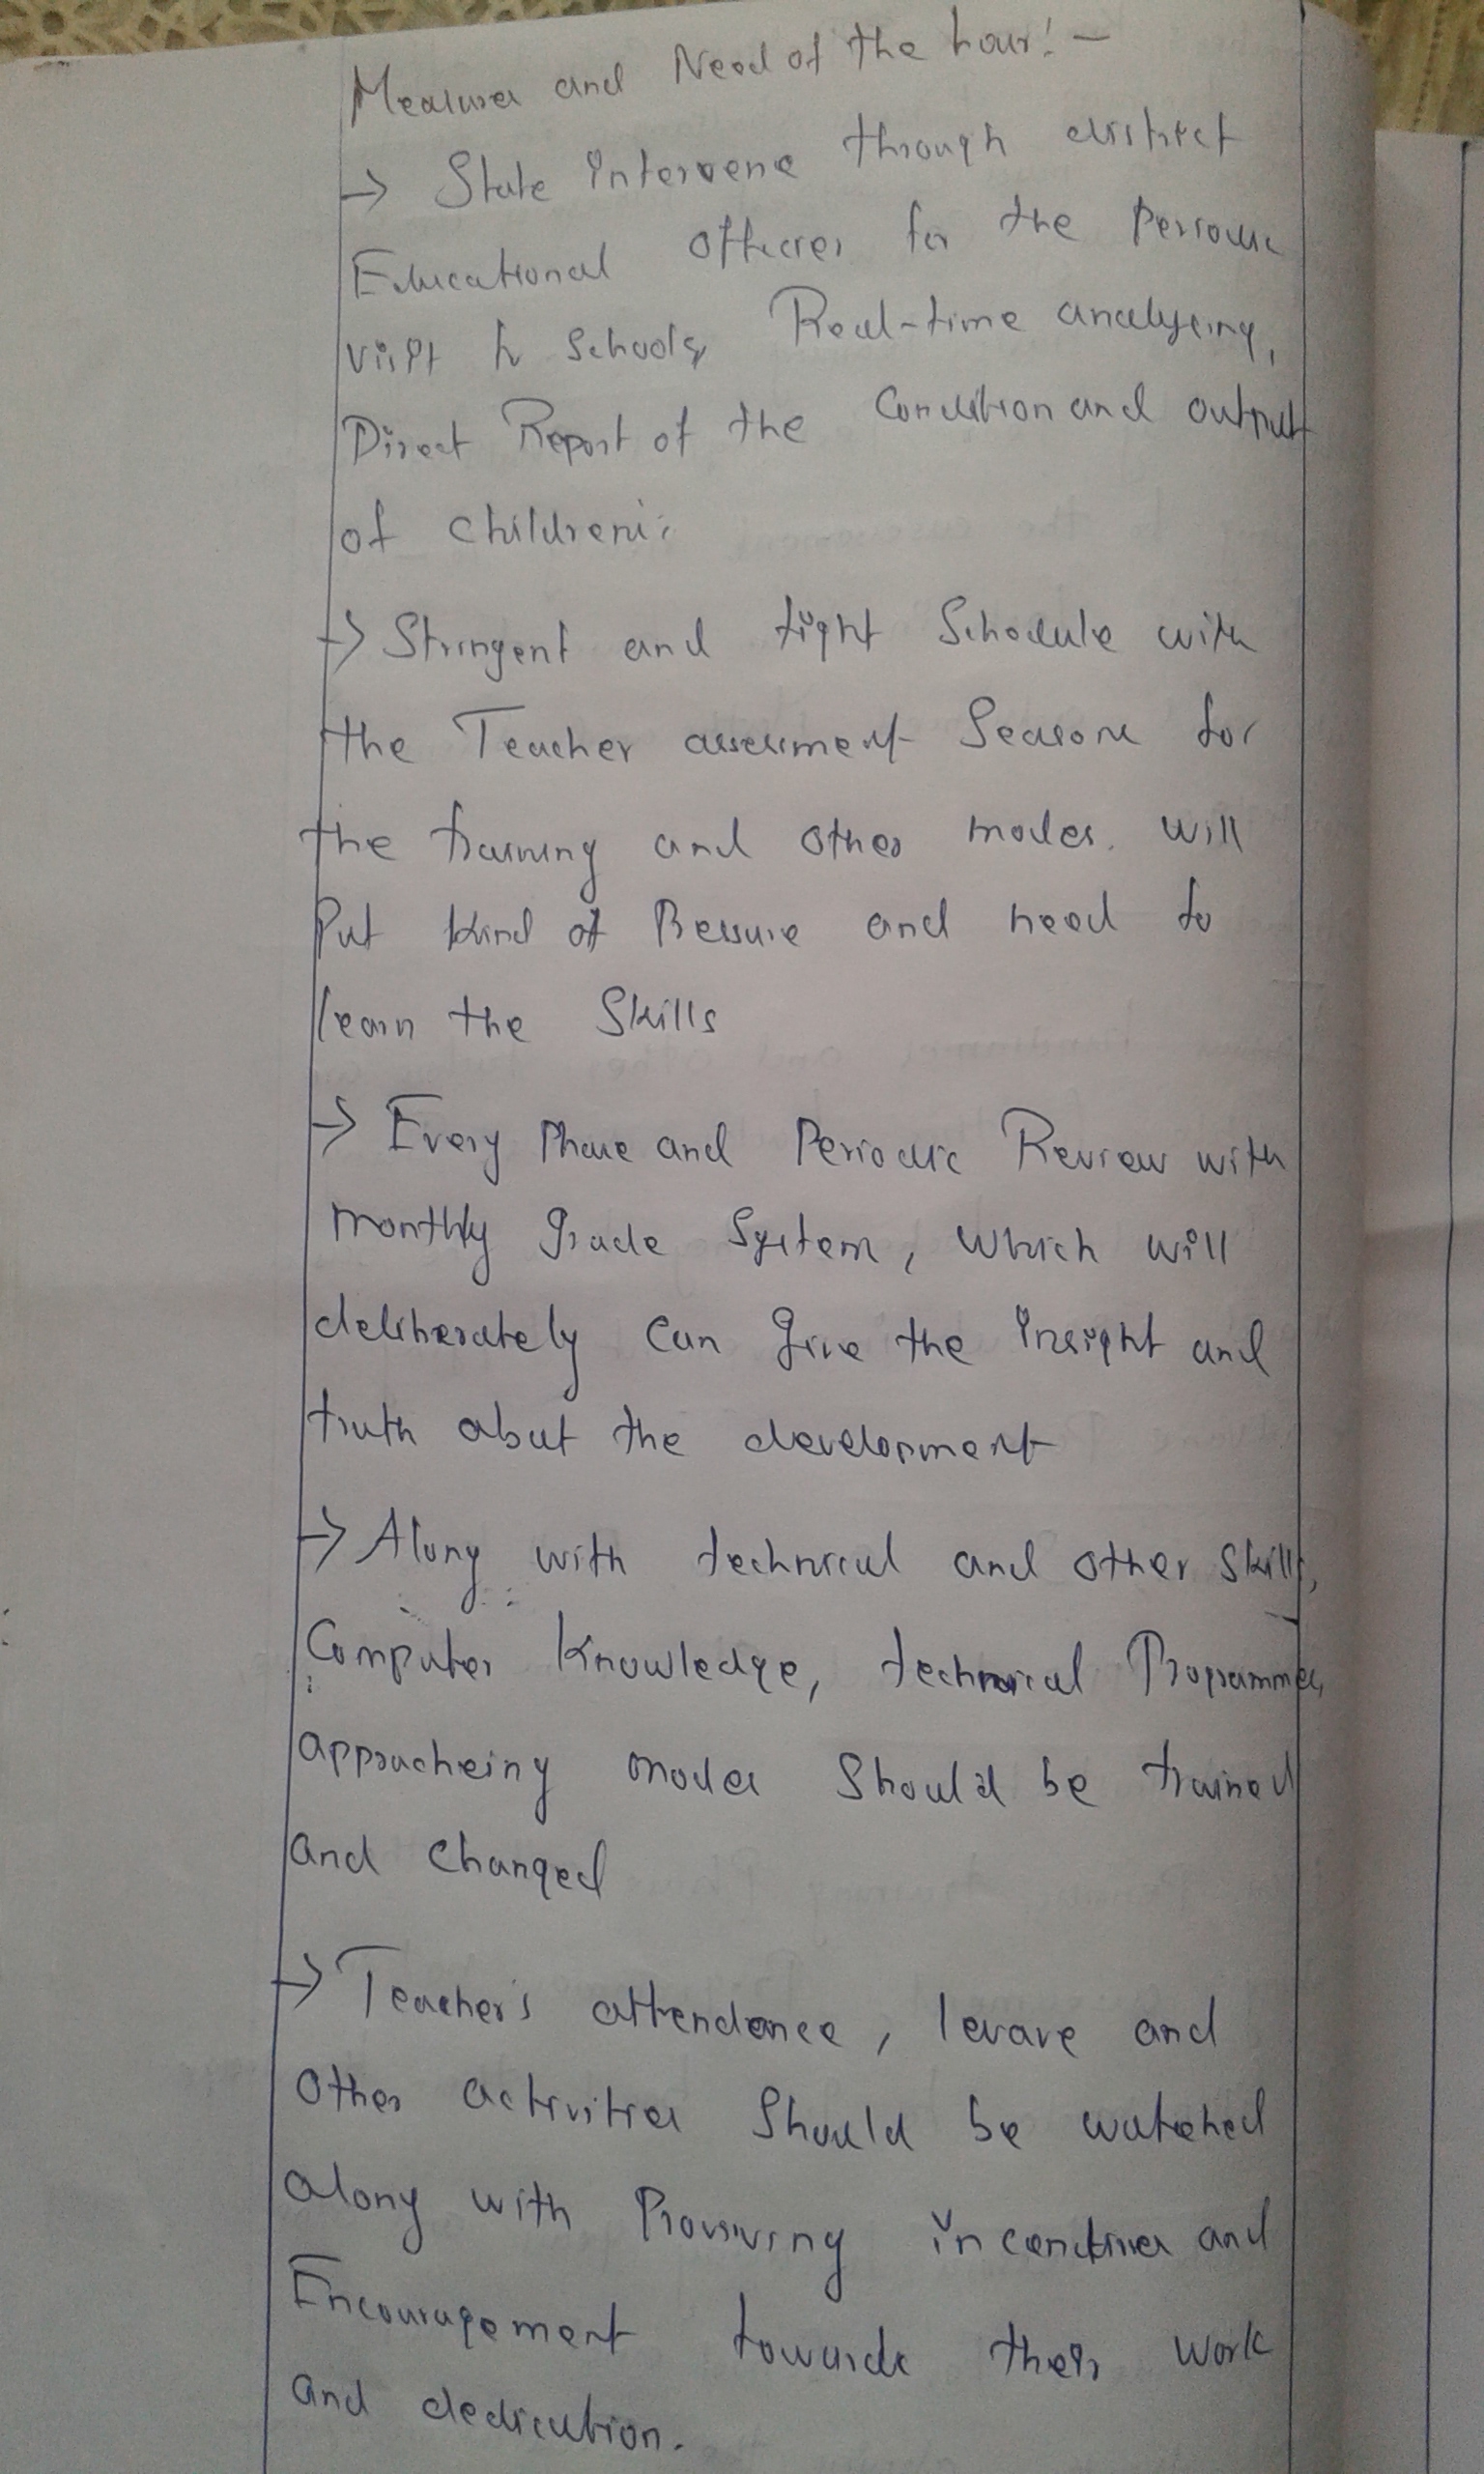 Measures and Need of the hour:-
→ State intervene through district
Educational officers for the Periodic
visit to schools, Real-time analyseing,
Direct Report of the Condition and output
of children:
→ Stringent and tight Schedule with
the Teacher assessment Seasons for
the training and other modes. will
Put kind of Pressure and need to
learn the Skills
→ Every Phase and Periodic Review with
monthly grade System, which will
deliberately can give the insight and
truth about the development
→ Along with technical and other skills,
Computer Knowledge, technical Programmes,
approacheing modes should be trained
and changed
→ Teacher's attendance, levave and
other activities should be watched
along with Proviving incentives and
Encouragement towards their work
and dedication.